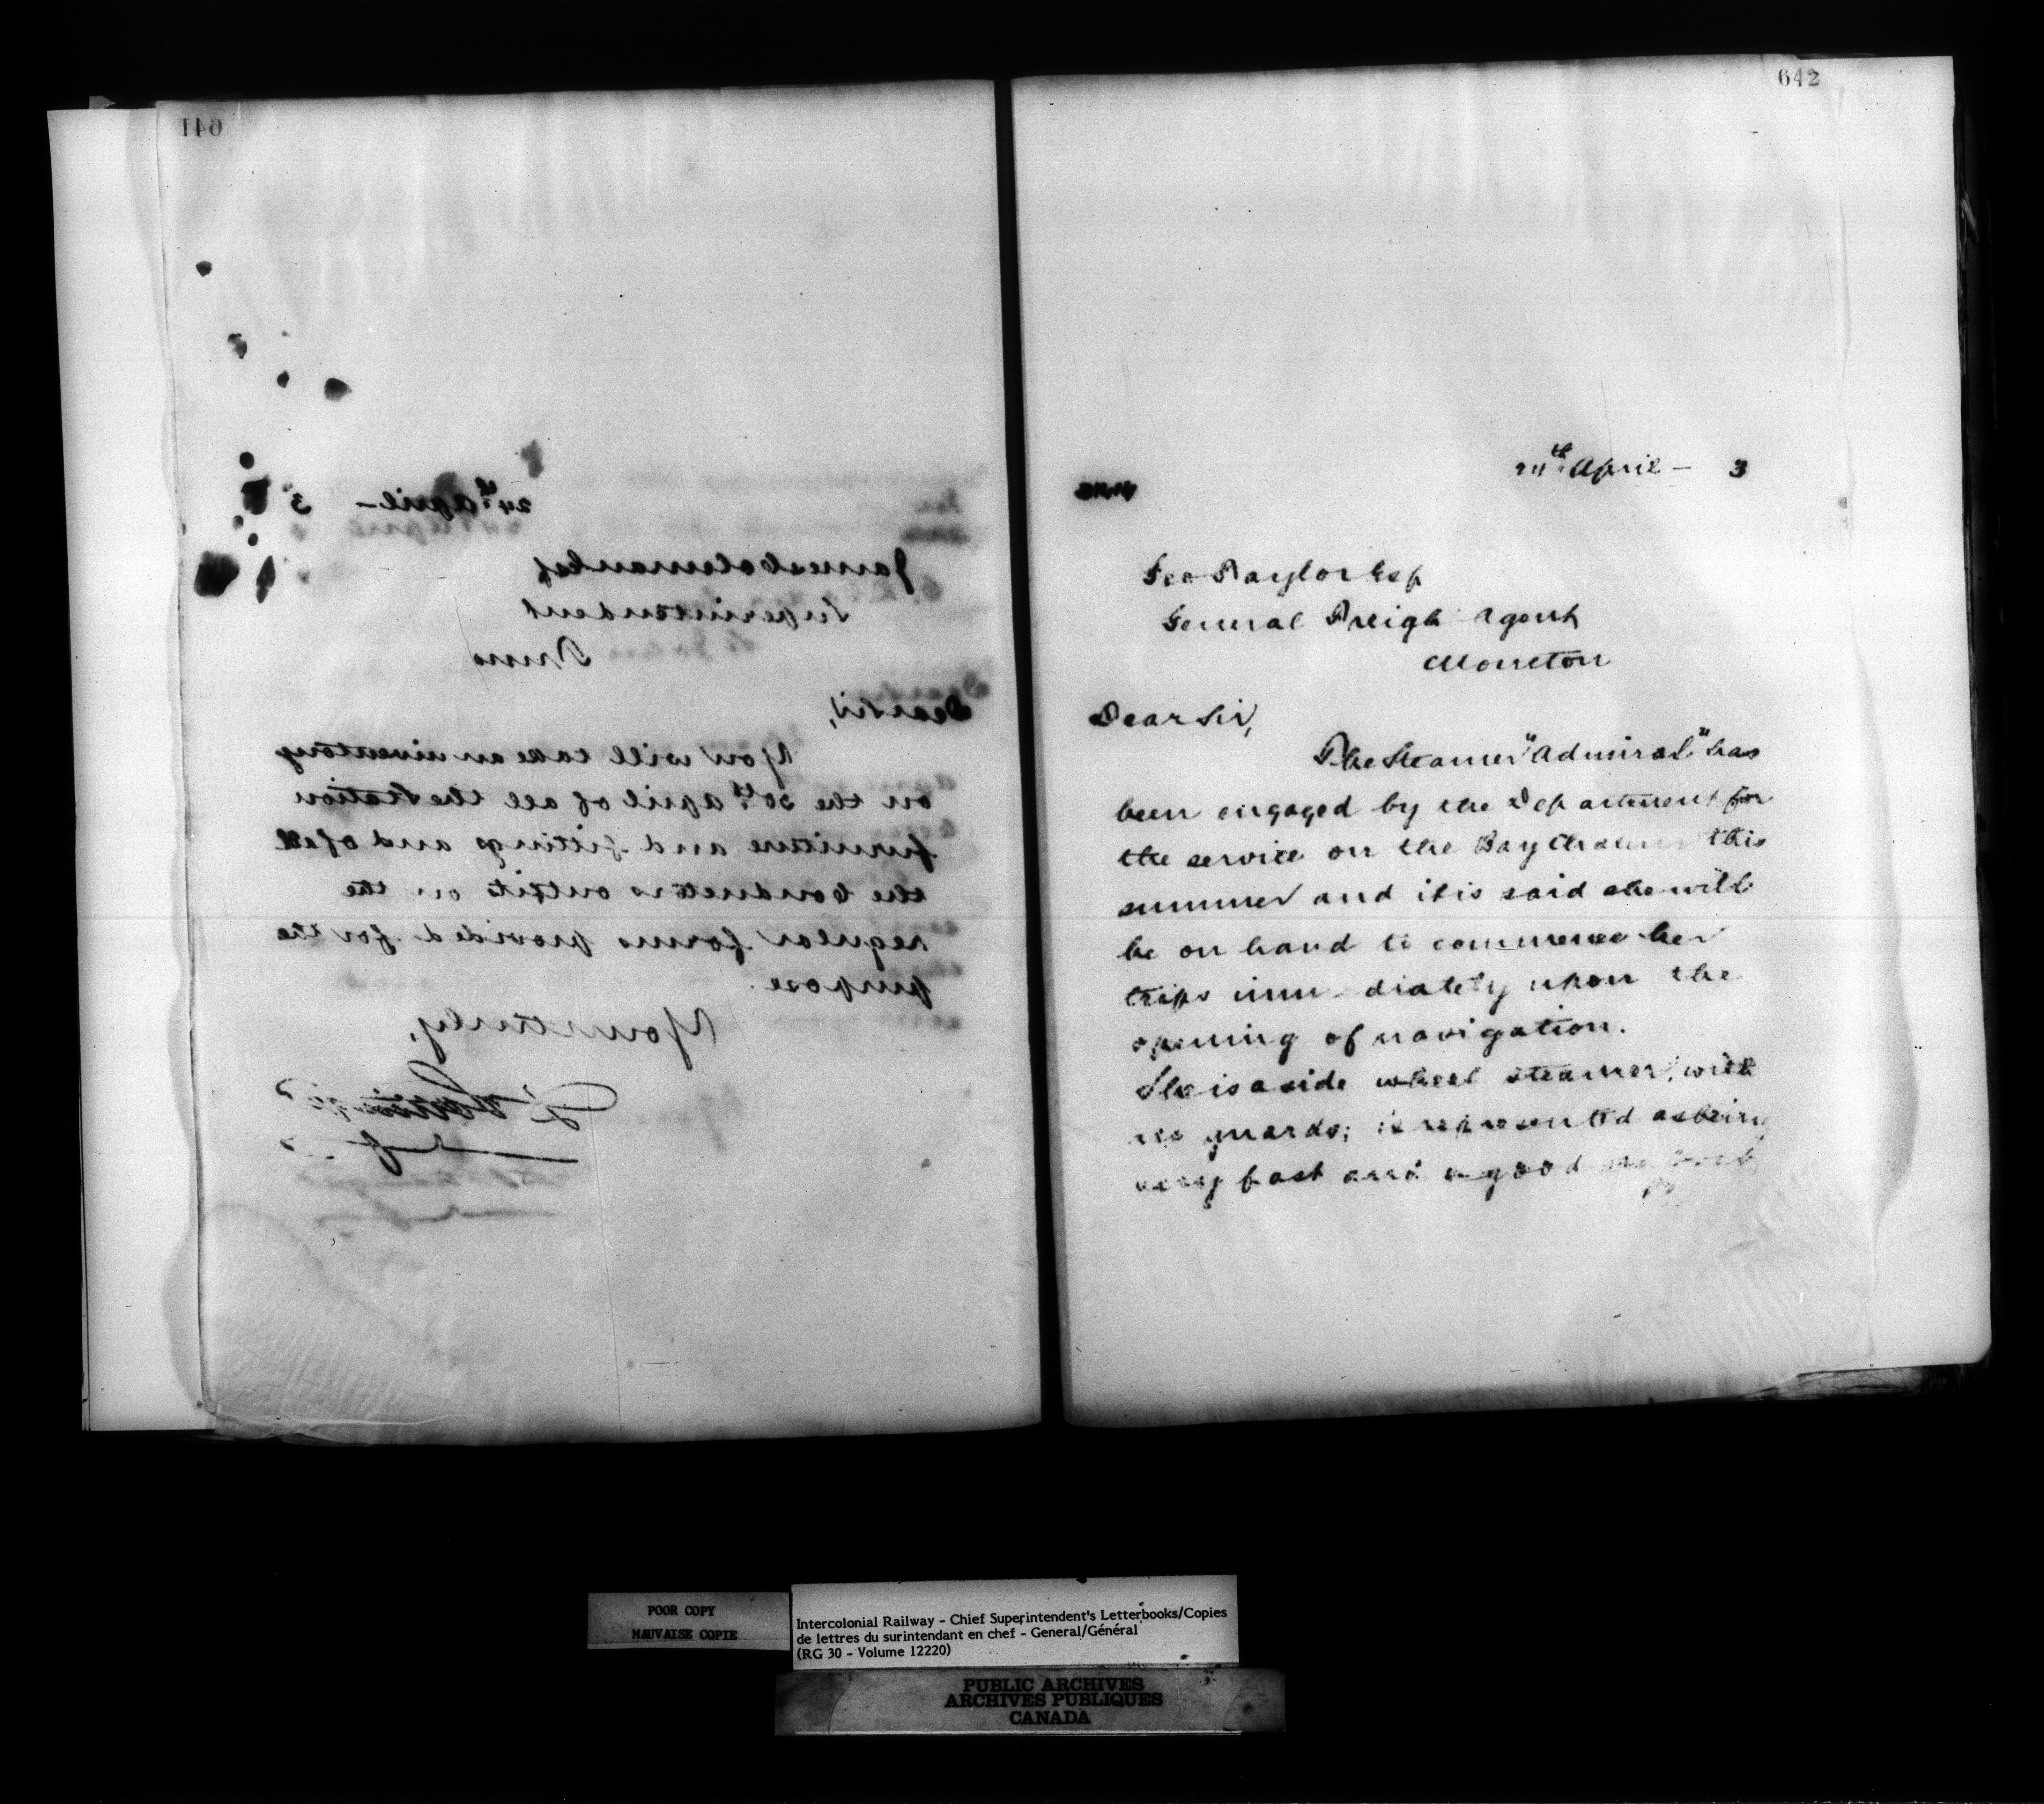 641
24th April – 3
James Coleman Esq
Superintendent
Truro
Dear Sir,
You will take an inventory
on the 30th April of all the Station
furniture and fittings and of all
the Conductors outfits on the
regular forms provided for the
purpose.
Yours truly,
642
24th April – 3
Geo Taylor Esq
General Freigh Agent
Moncton
Dear Sir,
The Steamer "Admiral" has
been engaged by the Department for
the service on the Bay Chaleur this
summer and it is said she will
be on hand to commence her
trips immediately upon the
opening of navigation.
She is a side wheel steamer, with
no guards; is represented as being
very fast and a good
POOR COPY
MAUVAISE COPIE
Intercolonial Railway - Chief Superintendent's Letterbooks/Copies
de lettres du surintendant en chef - General/Général
(RG 30 - Volume 12220)
PUBLIC ARCHIVES
ARCHIVES PUBLIQUES
CANADA